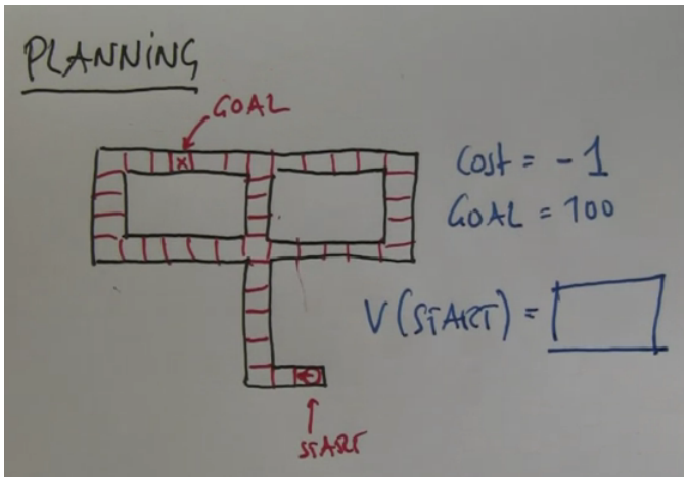 PLANNING
GOAL
x
COST = -1
GOAL = 100
V(START) =
START